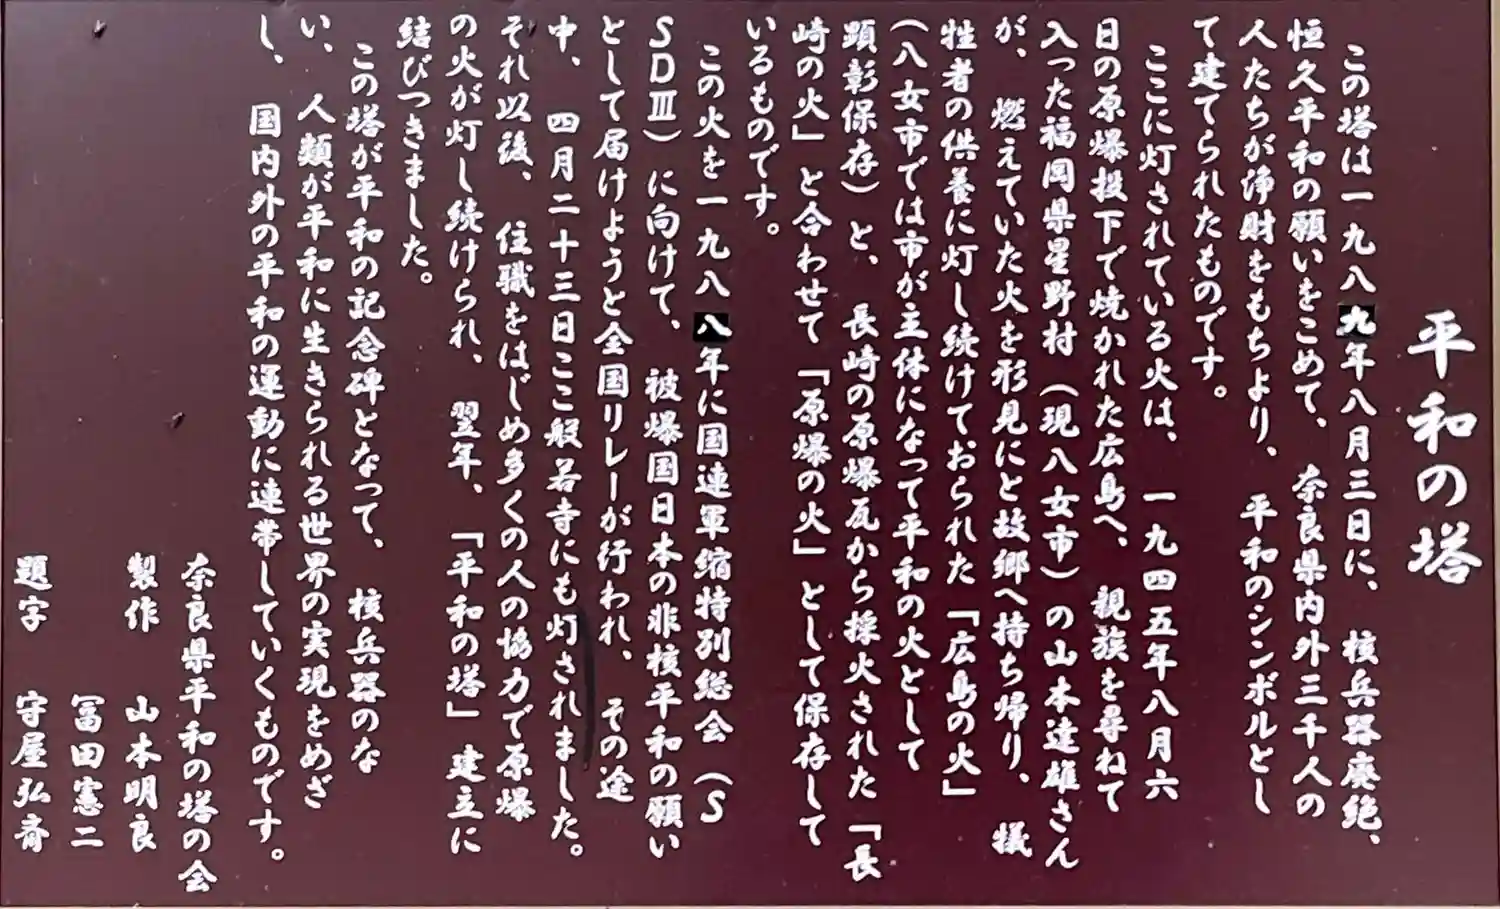 平和の塔
この塔は一九八九年八月三日に、核兵器廃絶、
恒久平和の願いをこめて、奈良県内外三千人の
人たちが浄財をもちより、平和のシンボルとし
て建てられたものです。
ここに灯されている火は、一九四五年八月六
日の原爆投下で焼かれた広島へ、親族を尋ねて
入った福岡県星野村(現八女市)の山本達雄さん
が、燃えていた火を形見にと故郷へ持ち帰り、犠
牲者の供養に灯し続けておられた「広島の火」
(八女市では市が主体になって平和の火として
顕彰保存)と、長崎の原爆瓦から採火された「長
崎の火」と合わせて「原爆の火」として保存して
いるものです。
この火を一九八八年に国連軍縮特別総会(S
SDⅢ)に向けて、被爆国日本の非核平和の願い
として届けようと全国リレーが行われ、その途
中、四月二十三日ここ般若寺にも灯されました。
それ以後、住職をはじめ多くの人の協力で原爆
の火が灯し続けられ、翌年、「平和の塔」建立に
結びつきました。
この塔が平和の記念碑となって、核兵器のな
い、人類が平和に生きられる世界の実現をめざ
し、国内外の平和の運動に連帯していくものです。
奈良県平和の塔の会
製作 山本明良
冨田憲二
題字 守屋弘斎